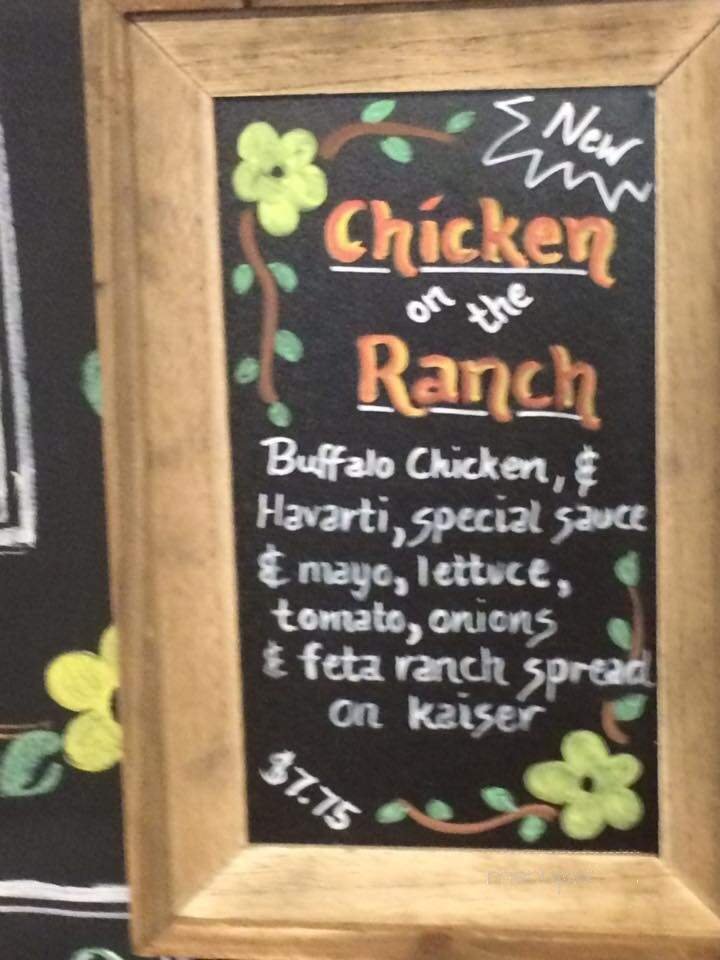 New
Chicken
on the
Ranch
Buffalo Chicken, &
Havarti, special sauce
& mayo, lettuce,
tomato, onions
& feta ranch spread
on kaiser
$7.75